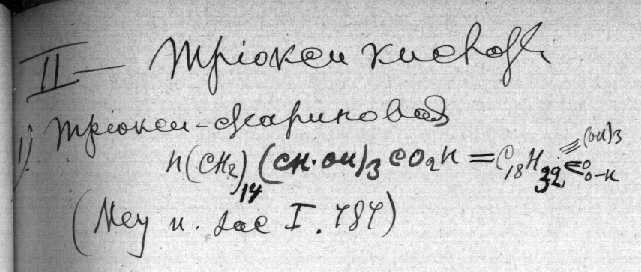 II — Тріокси кислоты
1) Тріокси-стариновая
H(CH₂)₁₄(CH·OH)₃CO₂H = C₁₈H₃₂ ≡(OH)₃ =O O-H
(Mey u. Jac I. 787)